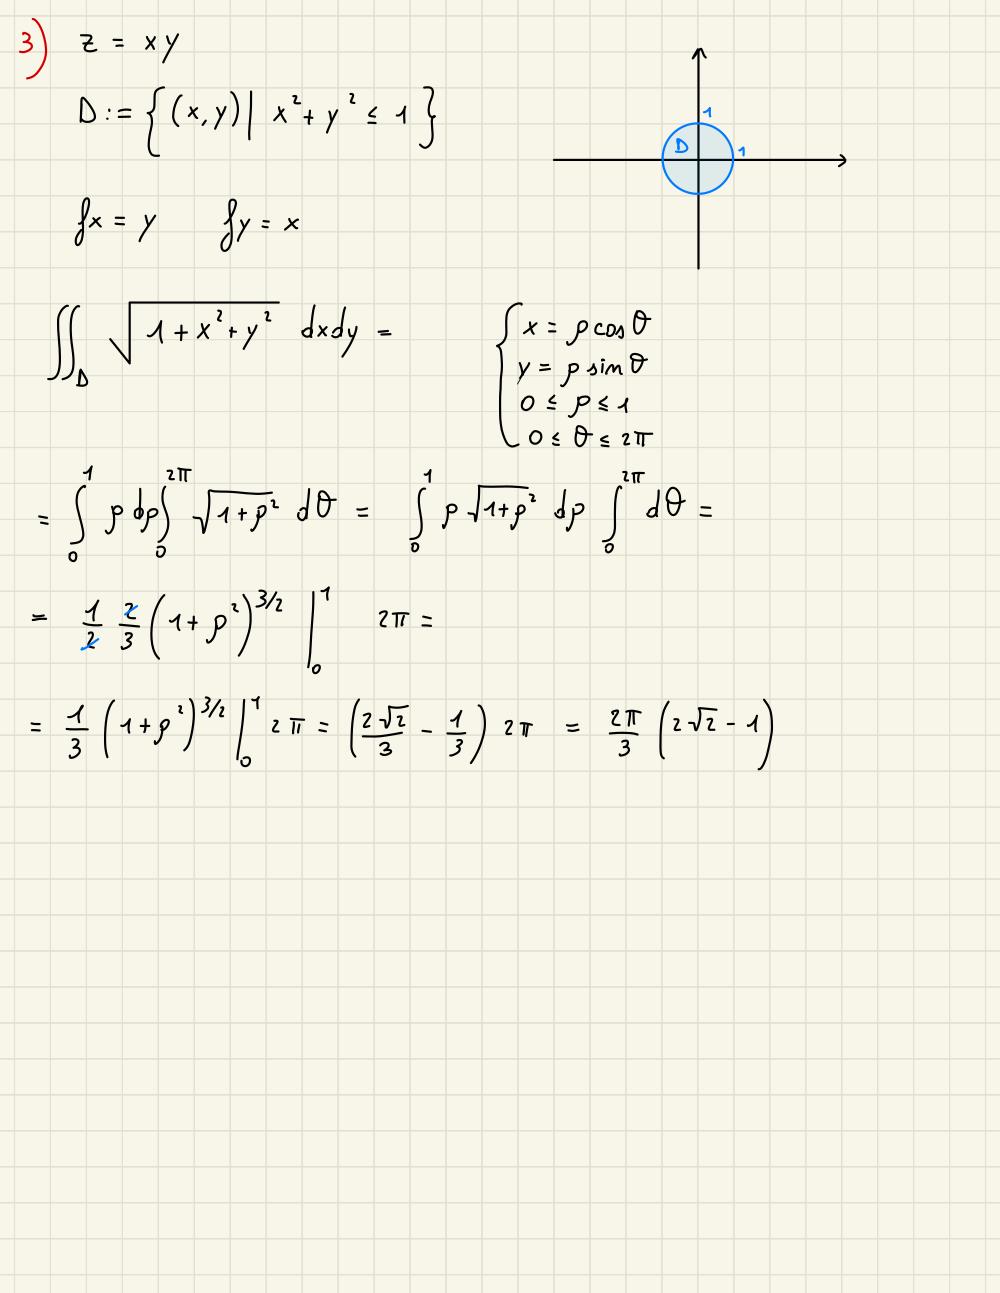 3) z = xy
D := { (x, y) | x² + y² ≤ 1 }
1
D 1
fx = y fy = x
∬_D √(1 + x² + y²) dxdy =
{ x = ρ cos θ
y = ρ sin θ
0 ≤ ρ ≤ 1
0 ≤ θ ≤ 2π
= ∫_0^1 ρ dρ ∫_0^{2π} √(1 + ρ²) dθ = ∫_0^1 ρ √(1+ρ²) dρ ∫_0^{2π} dθ =
= 1/2 2/3 (1 + ρ²)^{3/2} |_0^1 2π =
= 1/3 (1 + ρ²)^{3/2} |_0^1 2π = (2√2/3 - 1/3) 2π = 2π/3 (2√2 - 1)